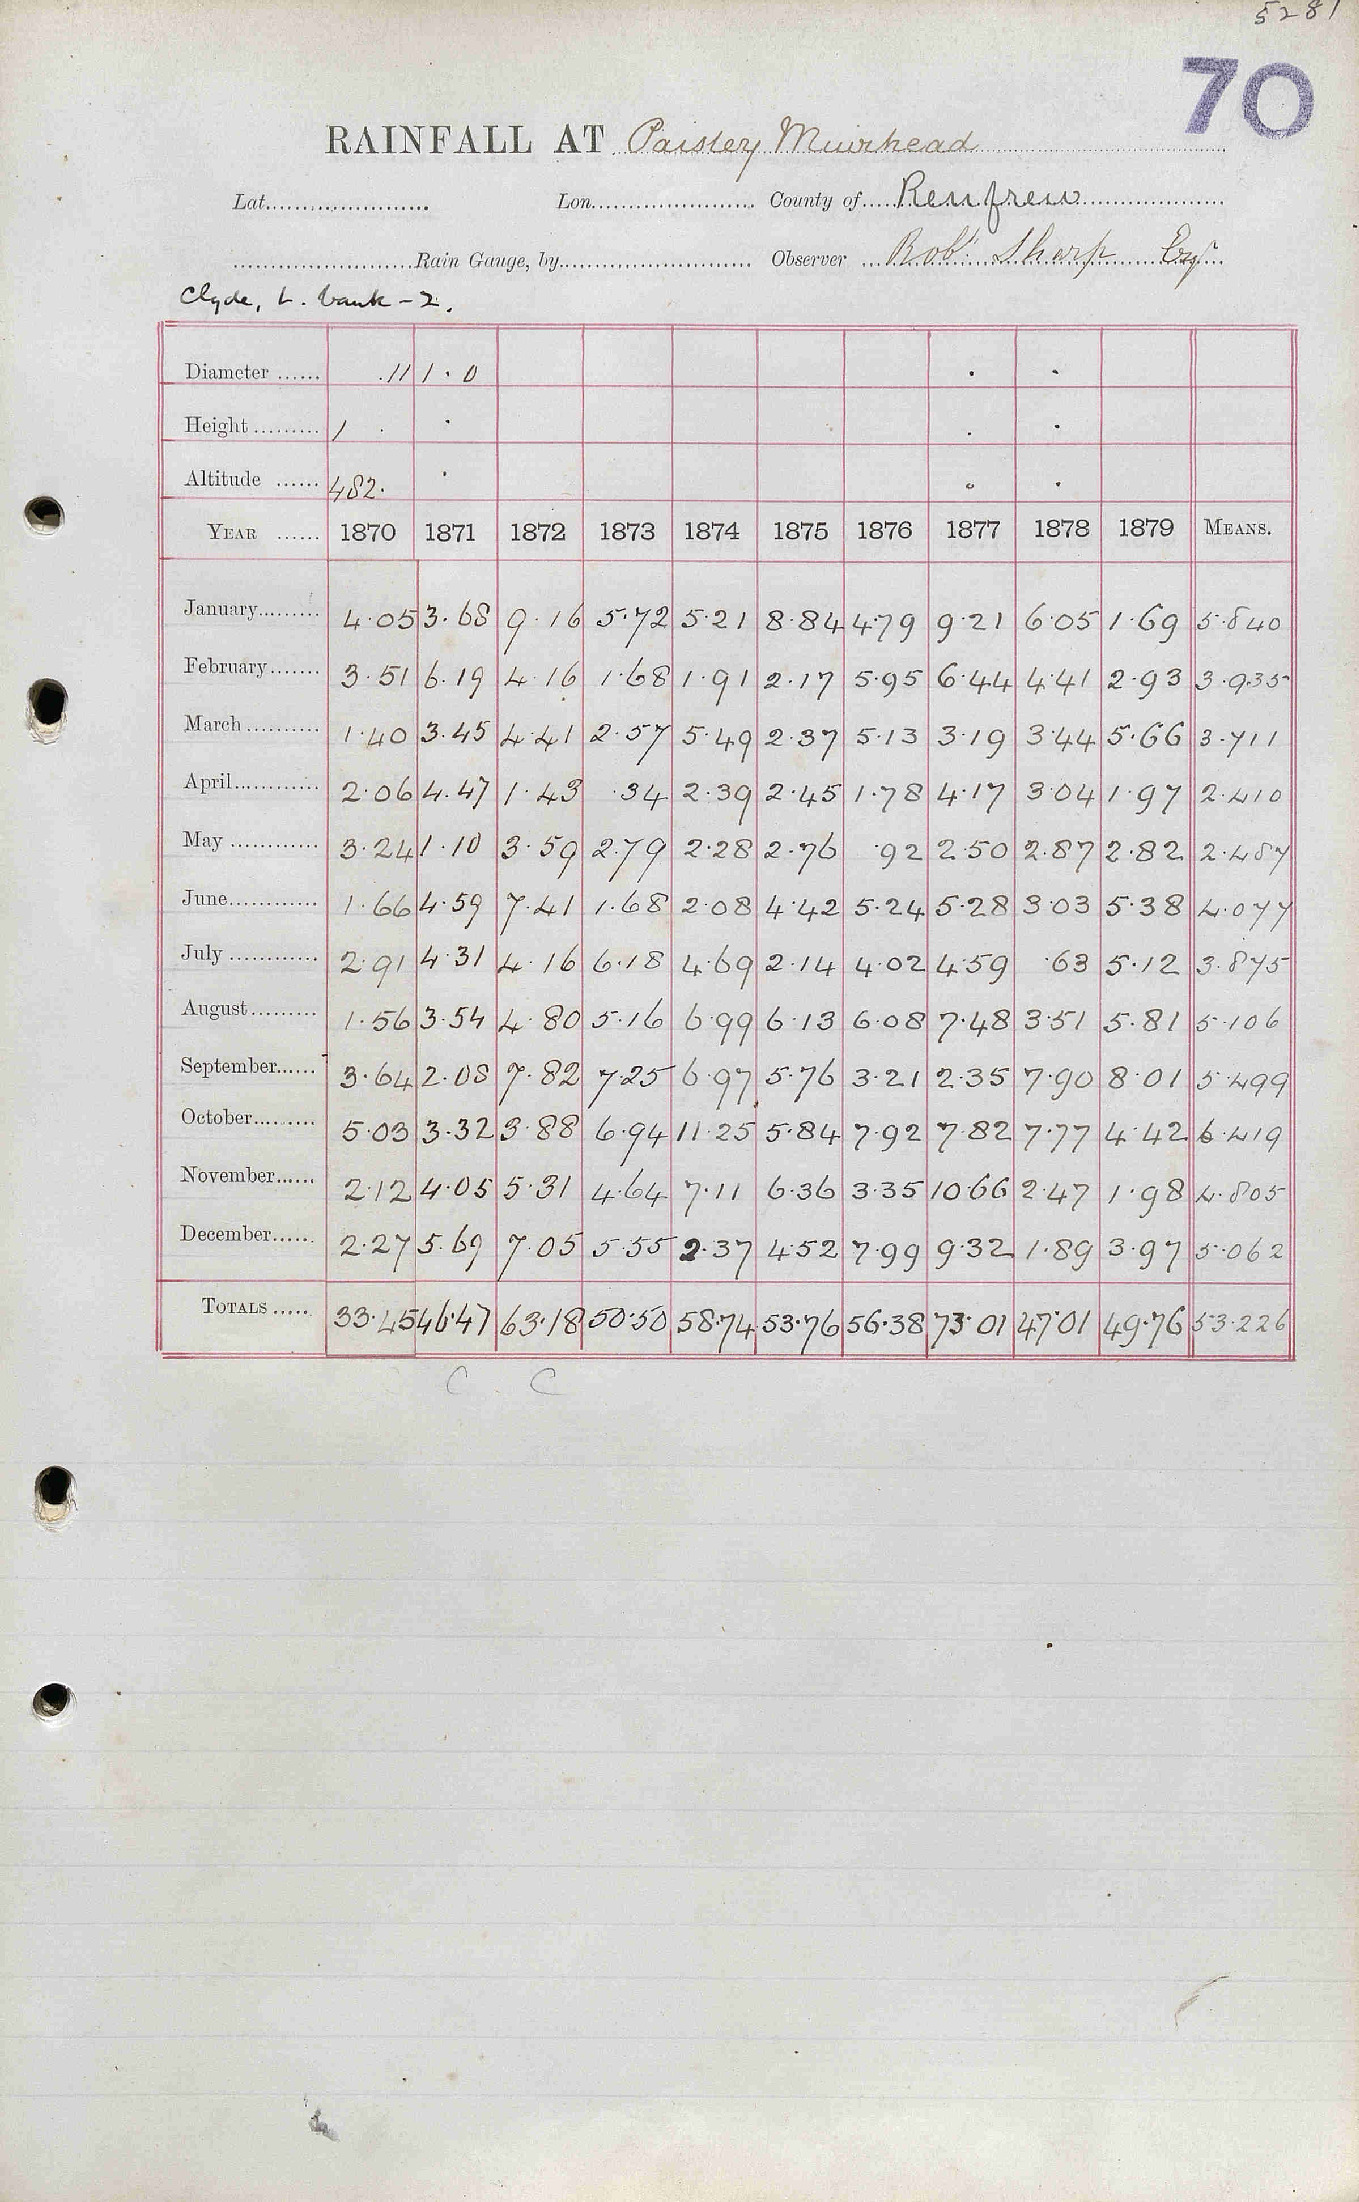 5281
70
RAINFALL AT Paisley Muirhead
Lat. Lon. County of Renfrew
Rain Gauge, by Observer Robt. Sharp Esqr.
Clyde, L. bank - 2.
Diameter 11 1·0
Height 1
Altitude 482.
YEAR 1870 1871 1872 1873 1874 1875 1876 1877 1878 1879 MEANS.
January 4·05 3·68 9·16 5·72 5·21 8·84 4·79 9·21 6·05 1·69 5·840
February 3·51 6·19 4·16 1·68 1·91 2·17 5·95 6·44 4·41 2·93 3·935
March 1·40 3·45 4·41 2·57 5·49 2·37 5·13 3·19 3·44 5·66 3·711
April 2·06 4·47 1·43 ·34 2·39 2·45 1·78 4·17 3·04 1·97 2·410
May 3·24 1·10 3·59 2·79 2·28 2·76 ·92 2·50 2·87 2·82 2·487
June 1·66 4·59 7·41 1·68 2·08 4·42 5·24 5·28 3·03 5·38 4·077
July 2·91 4·31 4·16 6·18 4·69 2·14 4·02 4·59 ·63 5·12 3·875
August 1·56 3·54 4·80 5·16 6·99 6·13 6·08 7·48 3·51 5·81 5·106
September 3·64 2·08 7·82 7·25 6·97 5·76 3·21 2·35 7·90 8·01 5·499
October 5·03 3·32 3·88 6·94 11·25 5·84 7·92 7·82 7·77 4·42 6·419
November 2·12 4·05 5·31 4·64 7·11 6·36 3·35 10·66 2·47 1·98 4·805
December 2·27 5·69 7·05 5·55 2·37 4·52 7·99 9·32 1·89 3·97 5·062
TOTALS 33·45 46·47 63·18 50·50 58·74 53·76 56·38 73·01 47·01 49·76 53·226
C C